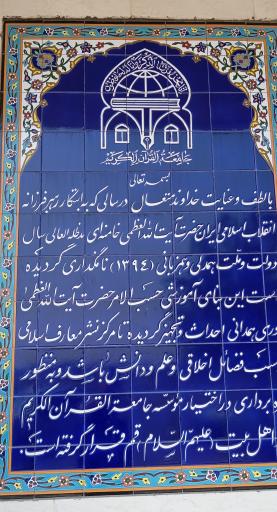 جامعة القرآن الكريم
بسمه تعالی
با لطف و عنایت خداوند متعال در سالی که به ابتکار رهبر فرزانه
انقلاب اسلامی ایران حضرت آیت الله العظمی خامنه‌ای مدظله العالی سال
دولت و ملت همدلی و همزبانی (۱۳۹۴) نامگذاری گردیده
است این بنای آموزشی حسب الامر حضرت آیت الله العظمی
نوری همدانی احداث و تجهیز گردید تا مرکز نشر معارف اسلامی
کسب فضائل اخلاقی و علم و دانش باشد و به منظور
بهره برداری در اختیار مؤسسه جامعة القرآن الکریم
و اهل بیت (علیهم السلام) قم قرار گرفته است.